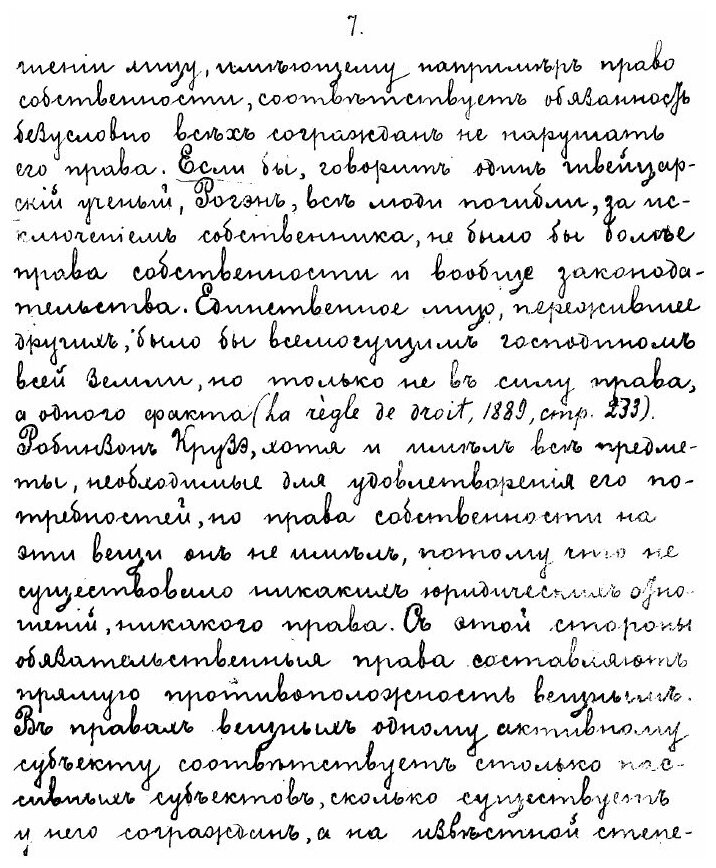 7.
шеніи лицу, имѣющему напримѣръ право
собственности, соотвѣтствуетъ обязанность
безусловно всѣхъ согражданъ не нарушать
его права. Если бы, говоритъ одинъ швейцар-
скій ученый, Рогэнъ, всѣ люди погибли, за ис-
ключеніемъ собственника, не было бы болѣе
права собственности и вообще законода-
тельства. Единственное лицо, пережившее
другихъ, было бы всемогущимъ господиномъ
всей земли, но только не въ силу права,
а одного факта (La règle de droit, 1889, стр. 233).
Робинзонъ Крузэ, хотя и имѣлъ всѣ предме-
ты, необходимые для удовлетворенія его по-
требностей, но права собственности на
эти вещи онъ не имѣлъ, потому что не
существовало никакихъ юридическихъ отно-
шеній, никакого права. Съ этой стороны
обязательственныя права составляютъ
прямую противоположность вещнымъ.
Въ правахъ вещныхъ одному активному
субъекту соотвѣтствуетъ столько пас-
сивныхъ субъектовъ, сколько существуетъ
у него согражданъ, а на извѣстной степе-